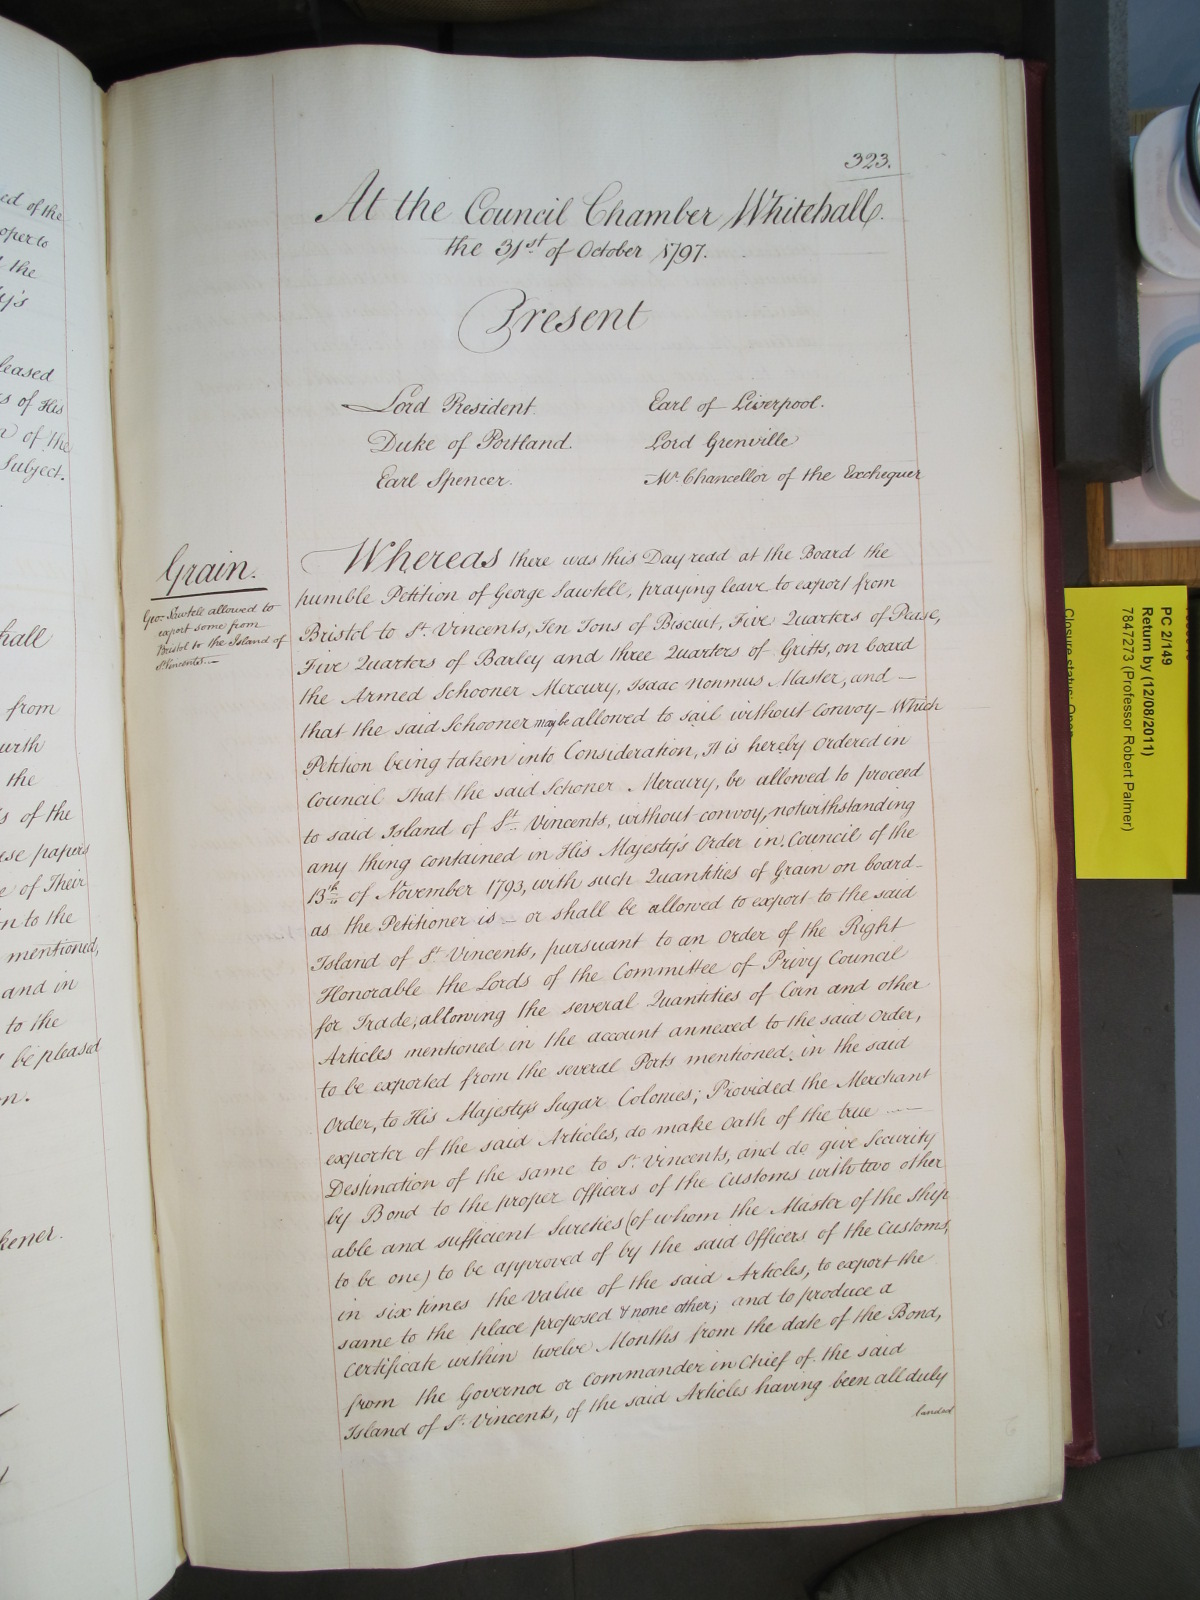 ed of the
oper to
the
y's
leased
s of His
of the
Subject.
hall
from
urth
the
s of the
ese papers
e of Their
n to the
mentioned,
and in
to the
be pleased
n.
kener.
323.
At the Council Chamber Whitehall.
the 31st. of October 1797.
Present
Lord President
Duke of Portland
Earl Spencer.
Earl of Liverpool.
Lord Grenville
Mr. Chancellor of the Exchequer
Grain.
Geo: Sawtell allowed to
export some from
Bristol to the Island of
St Vincents.—
Whereas there was this Day read at the Board the
humble Petition of George Sawtell, praying leave to export from
Bristol to St. Vincents, Ten Tons of Biscuit, Five Quarters of Pease,
Five Quarters of Barley and three Quarters of Gritts, on board
the Armed Schooner Mercury, Isaac Nonmus Master, and —
that the said Schooner may be allowed to sail without Convoy — Which
Petition being taken into Consideration, It is hereby Ordered in
Council That the said Schoner Mercury, be allowed to proceed
to said Island of St. Vincents, without convoy, notwithstanding
any thing contained in His Majesty's Order in Council of the
13th of November 1793, with such Quantities of Grain on board —
as the Petitioner is — or shall be allowed to export to the said
Island of St Vincents, pursuant to an Order of the Right
Honorable the Lords of the Committee of Privy Council
for Trade, allowing the several Quantities of Corn and other
Articles mentioned in the account annexed to the said Order,
to be exported from the several Ports mentioned, in the said
Order, to His Majesty's Sugar Colonies; Provided the Merchant
exporter of the said Articles, do make Oath of the true —
Destination of the same to St. Vincents, and do give Security
by Bond to the proper Officers of the Customs with two other
able and sufficient Sureties (of whom the Master of the Ship
to be one) to be approved of by the said Officers of the Customs,
in six times the Value of the said Articles, to export the
same to the place proposed & none other; and to produce a
Certificate within twelve Months from the date of the Bond,
from the Governor or Commander in Chief of the said
Island of St. Vincents, of the said Articles having been all duly
landed
PC 2/149
Return by (12/08/2011)
7847273 (Professor Robert Palmer)
Closure status Open